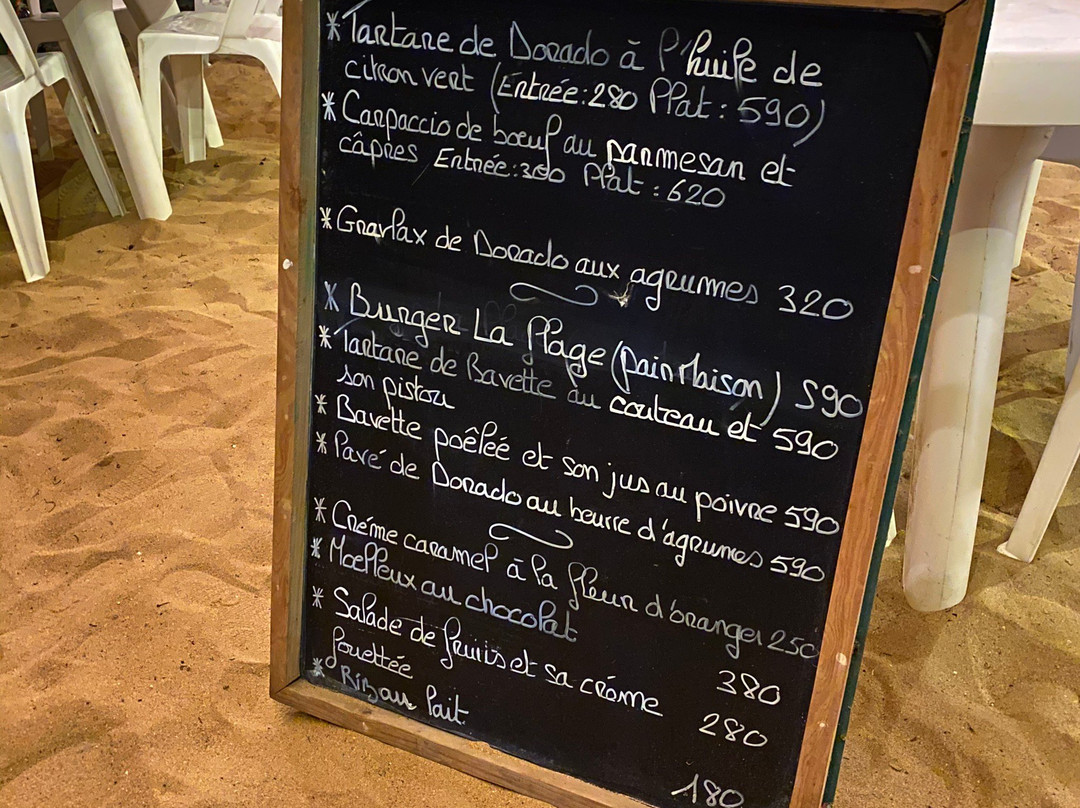 * Tartare de Dorado à l'huile de
citron vert (Entrée: 280 Plat : 590)
* Carpaccio de bœuf au parmesan et
câpres Entrée: 360 Plat : 620
* Gravlax de Dorado aux agrumes 320
* Burger La Plage (pain Maison) 590
* Tartare de Bavette au couteau et 590
son pistou
* Bavette poêlée et son jus au poivre 590
* Pavé de Dorado au beurre d'agrumes 590
* Créme caramel à la fleur d'oranger 250
* Moelleux au chocolat
380
* Salade de fruiis et sa créme
fouettée
280
* Riz au lait
180